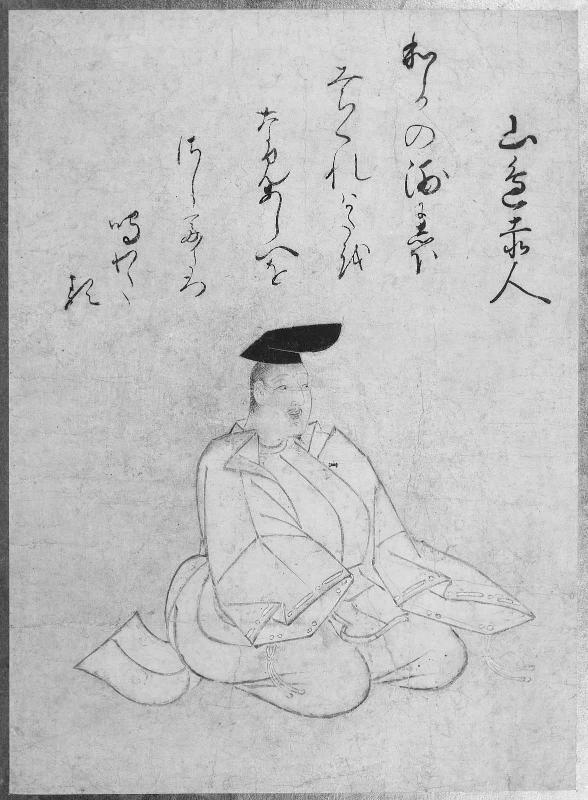 山邊赤人
和かの浦に志ほ
みちくれはかた越
なみあしへを
さしてたつ
鳴わた
る